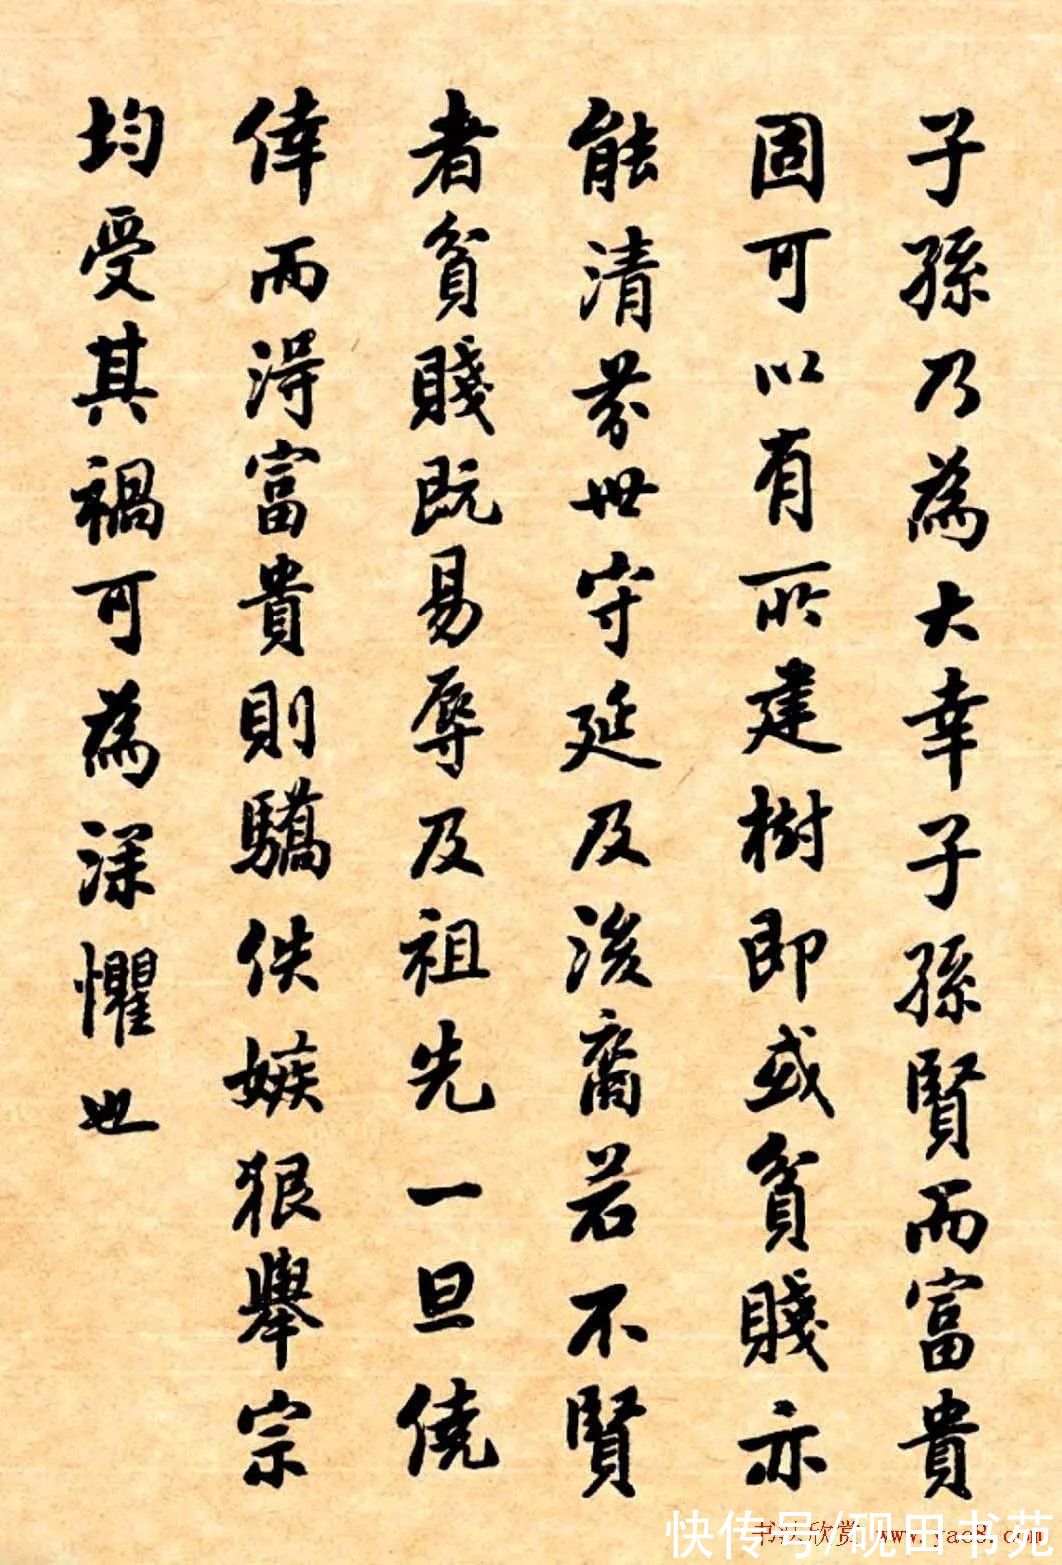 子孫乃為大幸子孫賢而富貴
固可以有所建樹即或貧賤亦
能清芬世守延及後裔若不賢
者貧賤既易辱及祖先一旦僥
倖而得富貴則驕佚嫉狠舉宗
均受其禍可為深懼也
快传号/砚田书苑
书法欣赏 www.yac8.com